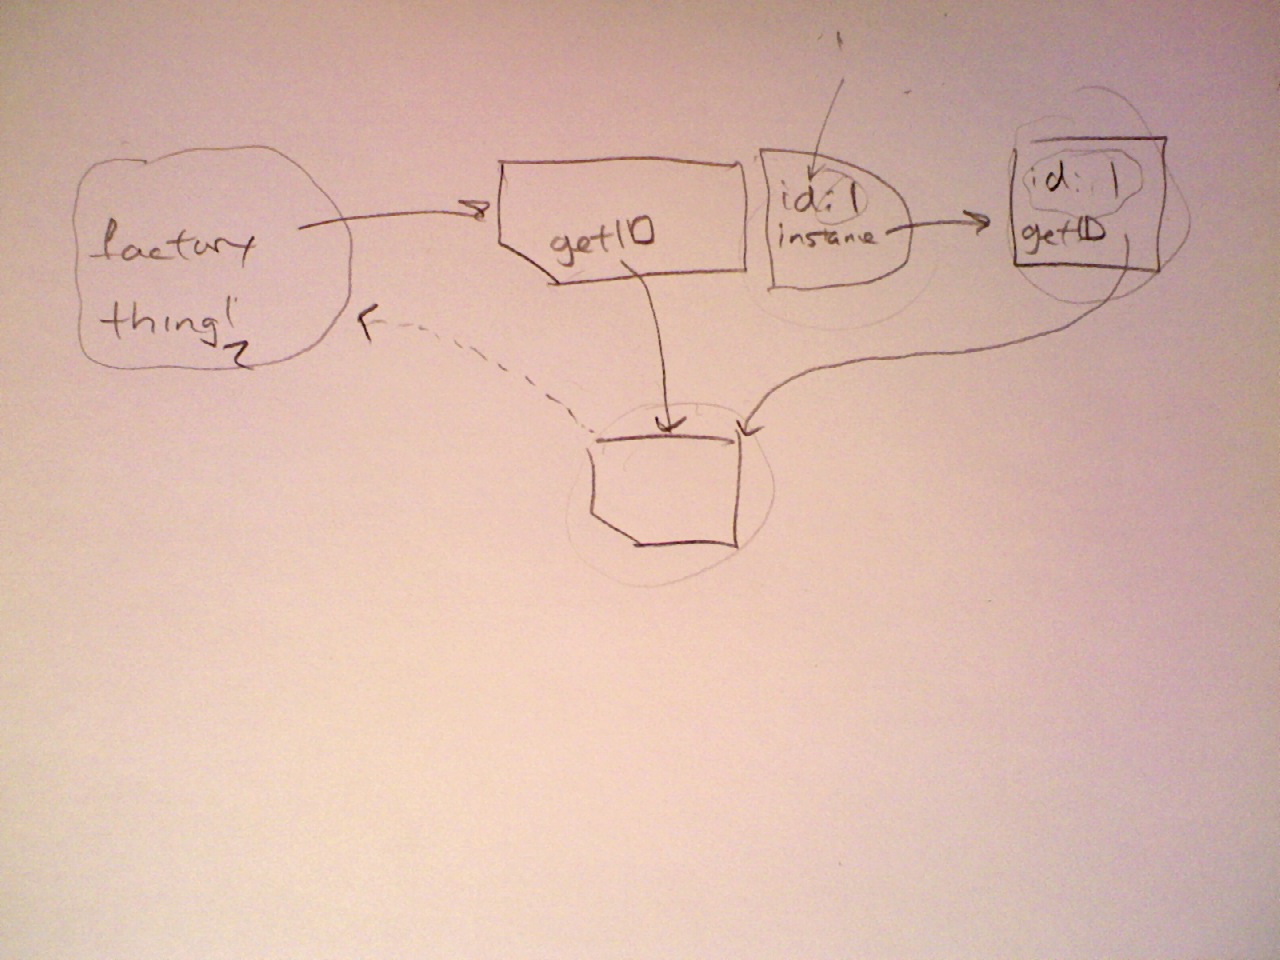 factory
thing!
getID
id: 1
instance
id: 1
getID